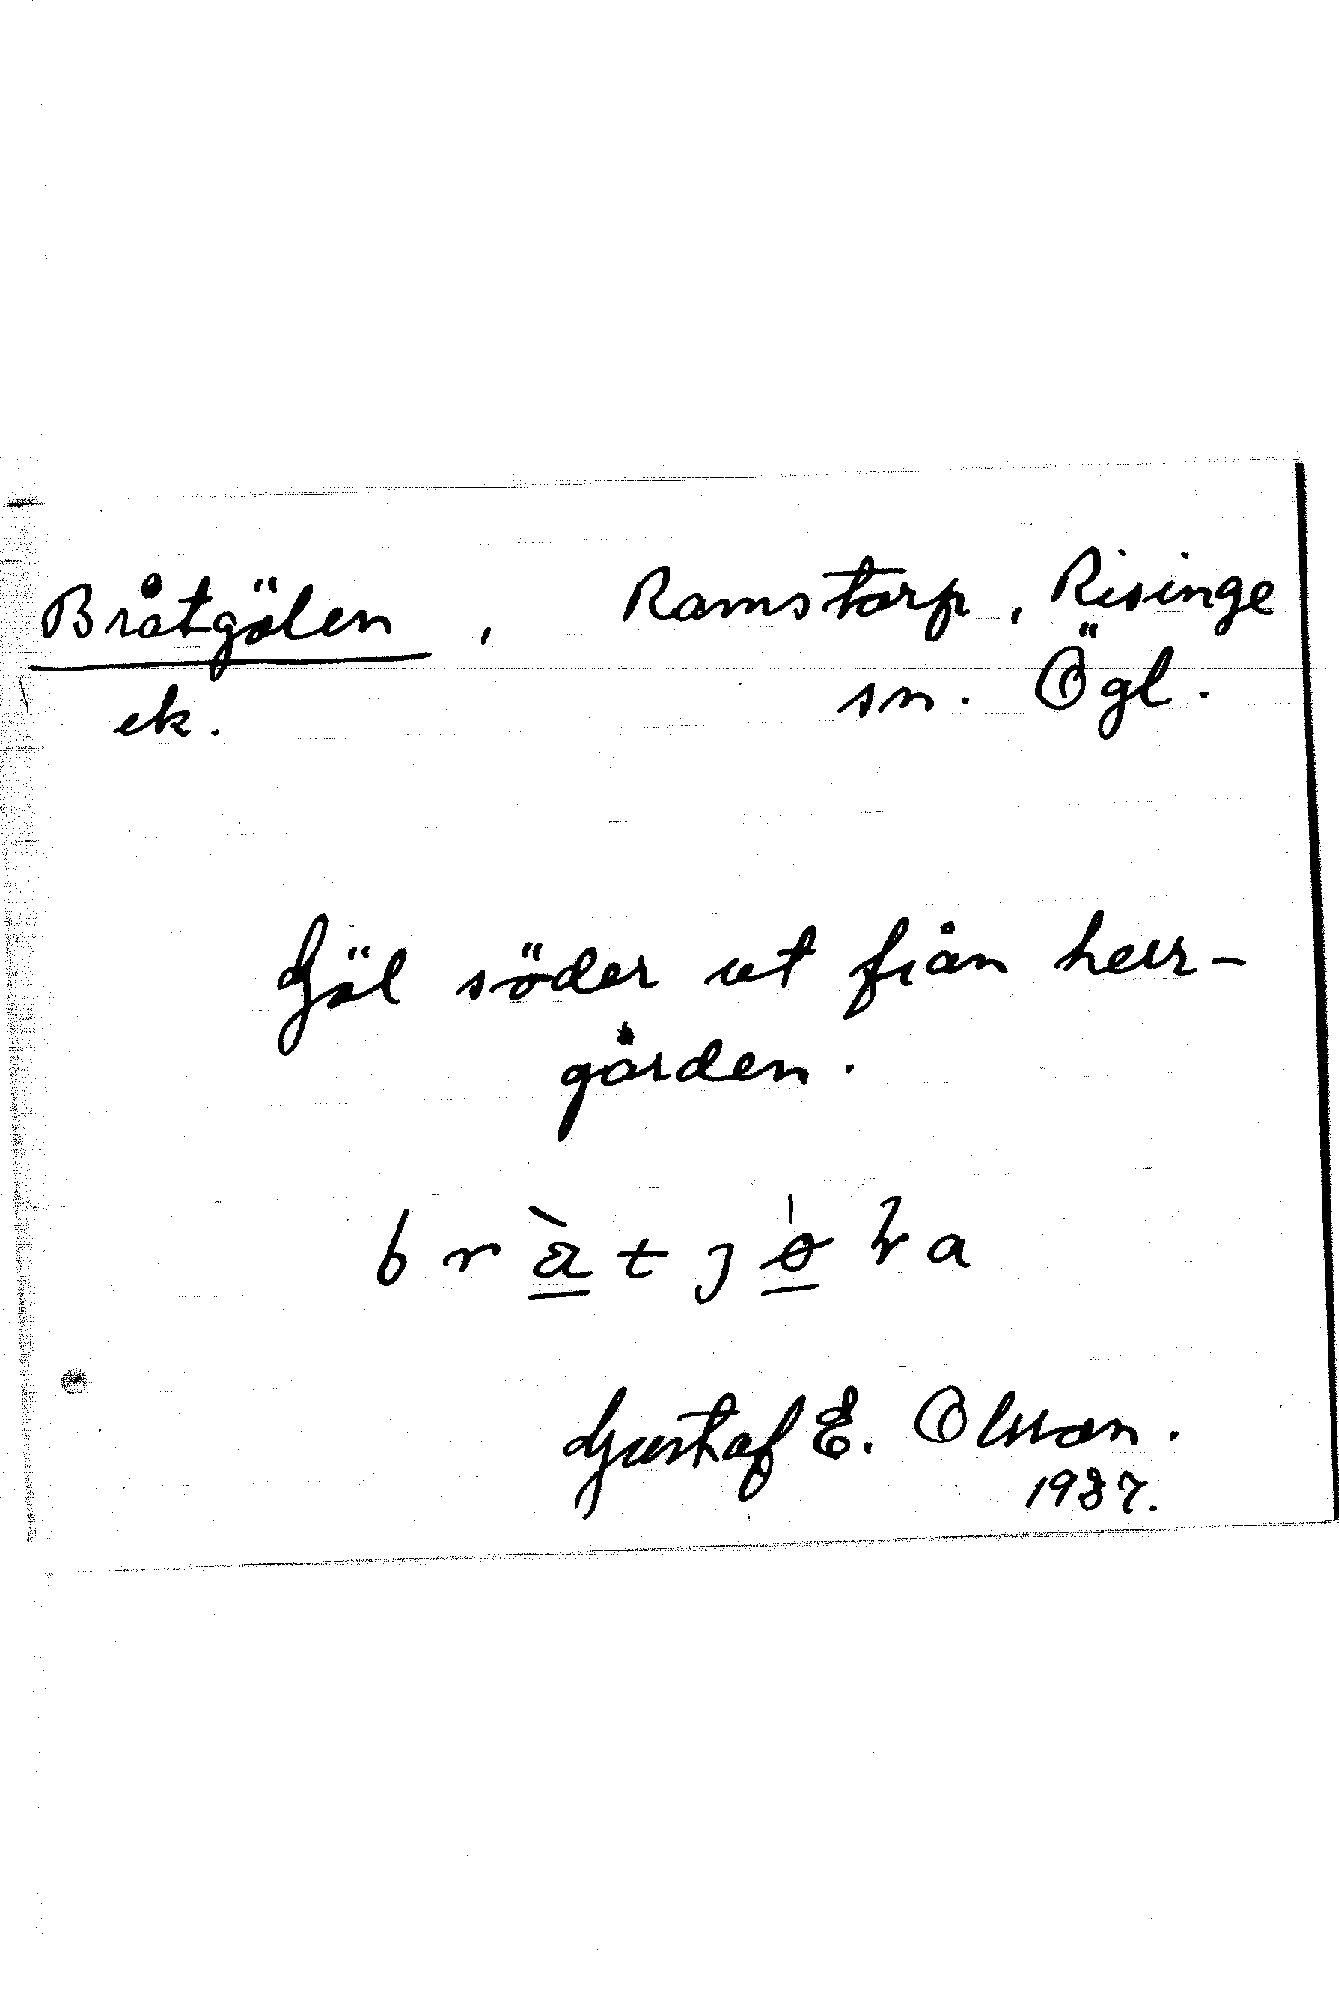 Bråtgölen, Ramstorp, Risinge
ek. sn. Ögl.
Göl söder ut från herr-
gården.
Gustaf E. Olsson.
1937.